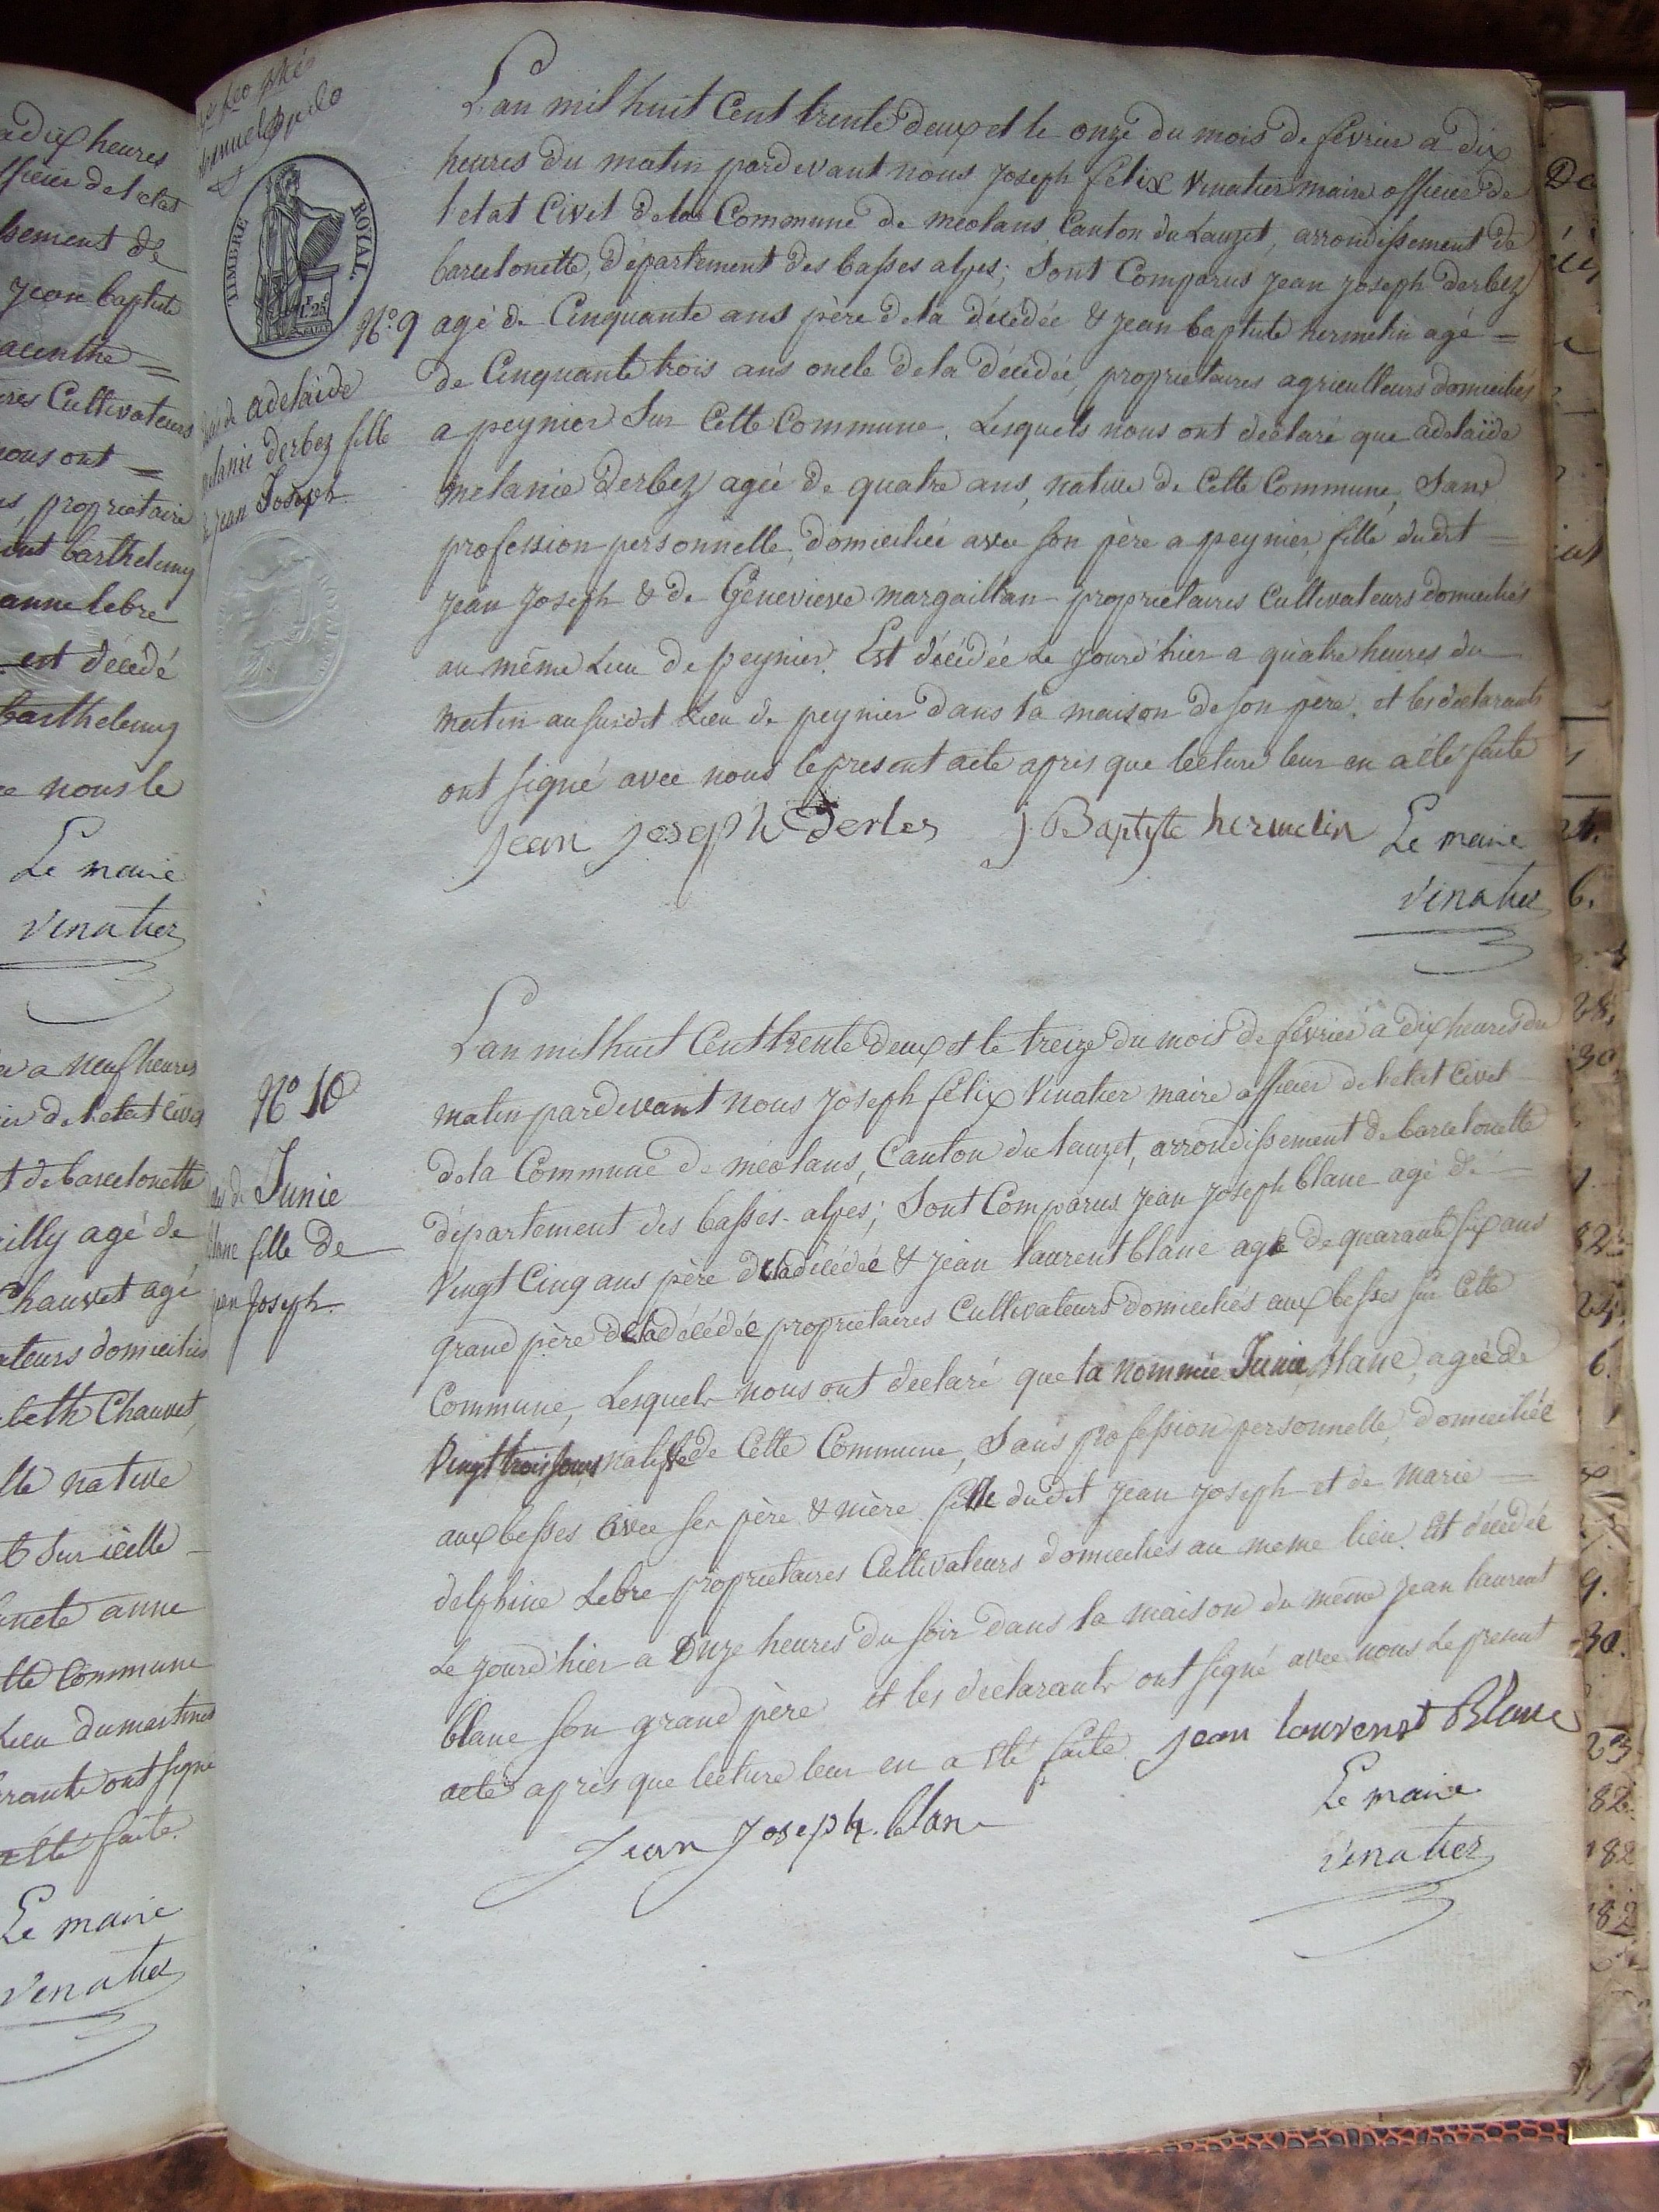 adix heures
officier de letat
Jean baptiste
=
Cultivateurs
nous ont =
proprietaire
barthelemy
anne lebre
est décedé
barthelemy
nous le
Le maire
Vinatier
a neuf heures
de letat civil
de barcelonette
agé de
Chauvet agé
domiciliés
Chauvet,
native
Sur icelle
anne
Commune
Lieu dumartinet
ont signé
été faite.
Le maire
Vinatier
TIMBRE ROYAL.
N.º 9
adelaide
melanie derbez fille
de jean Joseph
L'an mil huit Cent trente deux et le onze du mois de février a dix
heures du matin pardevant nous Joseph félix Vinatier maire officier de
letat Civil de la Commune de meolans Canton du Lauzet, arrondissement de
barcelonette, département des basses alpes; Sont Comparus Jean Joseph derbez
agé de Cinquante ans père de la décédée & Jean baptiste hermelin agé =
de Cinquante trois ans oncle de la décédée, propriétaires agriculteurs domiciliés
a peynier Sur Cette Commune. Lesquels nous ont déclaré que adelaïde
melanie derbez agée de quatre ans, native de Cette Commune, Sans
profession personnelle, domiciliée avec son père a peynier, fille dudit =
Jean Joseph & de Génevieve margaillan propriétaires Cultivateurs domiciliés
au même Lieu de peynier. Est décédée Le Jourd'hier a quatre heures du
matin au susdit Lieu de peynier dans la maison de son père. et les déclarants
ont signé avec nous le present acte après que lecture leur en a été faite
Jean Joseph Derbes J. Baptiste hermelin Le maire
Vinatier
N.º 10
Junie
blanc fille de
jean Joseph
L'an mil huit Cent trente deux et le treize du mois de février a dix heures du
matin pardevant nous Joseph félix Vinatier maire officier de letat Civil
dela Commune de méolans, Canton du lauzet, arrondissement de barcelonette
département des basses-alpes; Sont Comparus Jean Joseph blanc agé de
Vingt Cinq ans père deladécédée & Jean laurent blanc agé de quarante six ans
grand père deladécédée propriétaires Cultivateurs domiciliés aux besses sur Cette
Commune, Lesquels nous ont déclaré que la nommée Junie blanc, agée de
Vingt trois jours native de Cette Commune, Sans profession personnelle, domiciliée
aux besses avec ses père & mère. fille dudit Jean Joseph et de marie
delphine Lebre propriétaires Cultivateurs domiciliés au meme lieu. Est décédée
Le Jourd'hier a Onze heures du soir dans la maison du même Jean laurent
blanc son grand père et les déclarants ont signé avec nous Le present
acte après que lecture leur en a été faite. Jean laurenst Blanc
Jean Joseph. blanc Le maire
Vinatier
28.
30.
6.
9.
30.
23
82.
182
182